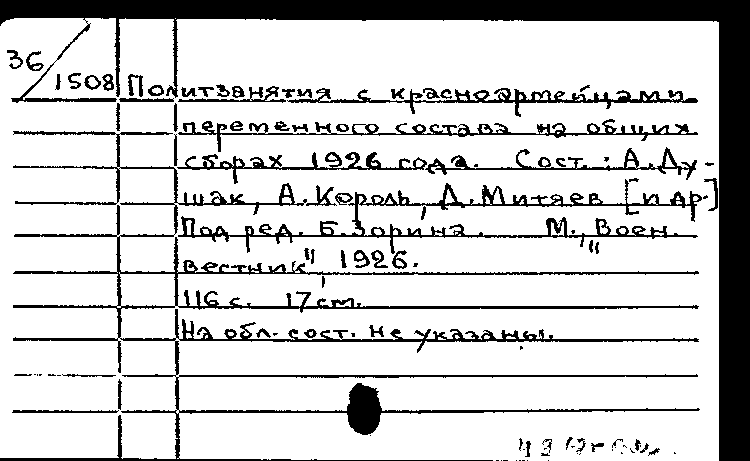 36/1508 Политзанятия с красноармейцами
переменного состава на общих
сборах 1926 года. Сост.: А. Ду-
шак, А. Король, Д. Митяев [и др.]
Под ред. Б. Зорина. М., "Воен.
вестник", 1926.
116 с. 17 см.
На обл. сост. не указаны.